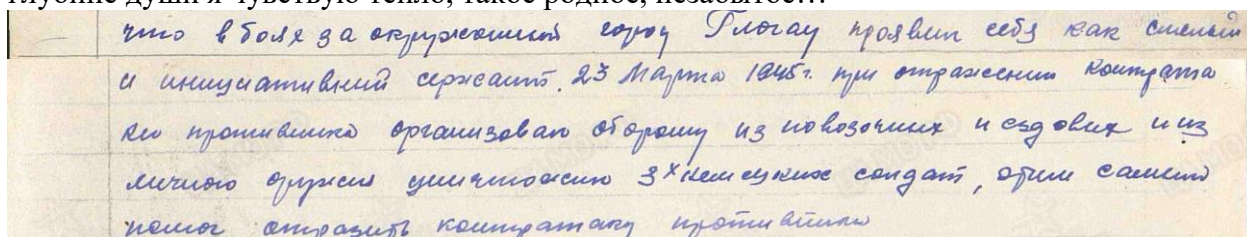 глубине души я чувствую тепло, такое родное, незабытое…
что в боях за окруженный город Глогау проявил себя как смелый
и инициативный сержант. 23 Марта 1945 г. при отражении контрата
ки противника организовал оборону из повозочных и ездовых и из
личного оружия уничтожил 3х немецких солдат, этим самым
помог отразить контратаку противника